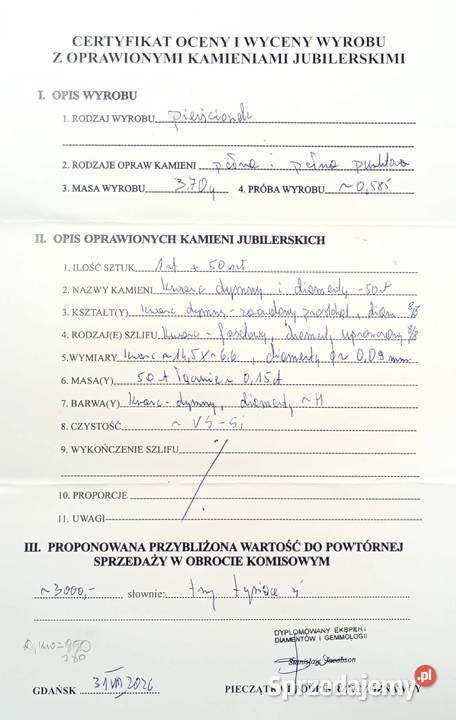 CERTYFIKAT OCENY I WYCENY WYROBU
Z OPRAWIONYMI KAMIENIAMI JUBILERSKIMI
I. OPIS WYROBU
1. RODZAJ WYROBU pierścionek
2. RODZAJE OPRAW KAMIENI pełna i pełna punktowa
3. MASA WYROBU 3.70g 4. PRÓBA WYROBU ~0,585
II. OPIS OPRAWIONYCH KAMIENI JUBILERSKICH
1. ILOŚĆ SZTUK 1szt + 50szt
2. NAZWY KAMIENI kwarc dymny i diamenty - 50szt
3. KSZTAŁT(Y) kwarc dymny - prostokąt, diam. 8/8
4. RODZAJ(E) SZLIFU kwarc - fasetowy, diamenty uproszczony 8/8
5. WYMIARY kwarc ~ 14,5 x ~ 6.6, diamenty φ ~ 0,09 mm
6. MASA(Y) 50szt łącznie ~ 0,15ct
7. BARWA(Y) kwarc - dymny, diamenty ~ H
8. CZYSTOŚĆ ~ VS-Si
9. WYKOŃCZENIE SZLIFU
10. PROPORCJE
11. UWAGI
III. PROPONOWANA PRZYBLIŻONA WARTOŚĆ DO POWTÓRNEJ
SPRZEDAŻY W OBROCIE KOMISOWYM
~3000,- słownie: trzy tysiące zł
DYPLOMOWANY EKSPERT
DIAMENTÓW I GEMMOLOGII
Stanisław Jacobson
GDAŃSK 31 VII 2026 PIECZĄTKA I PODPIS
Sprzedajemy.pl